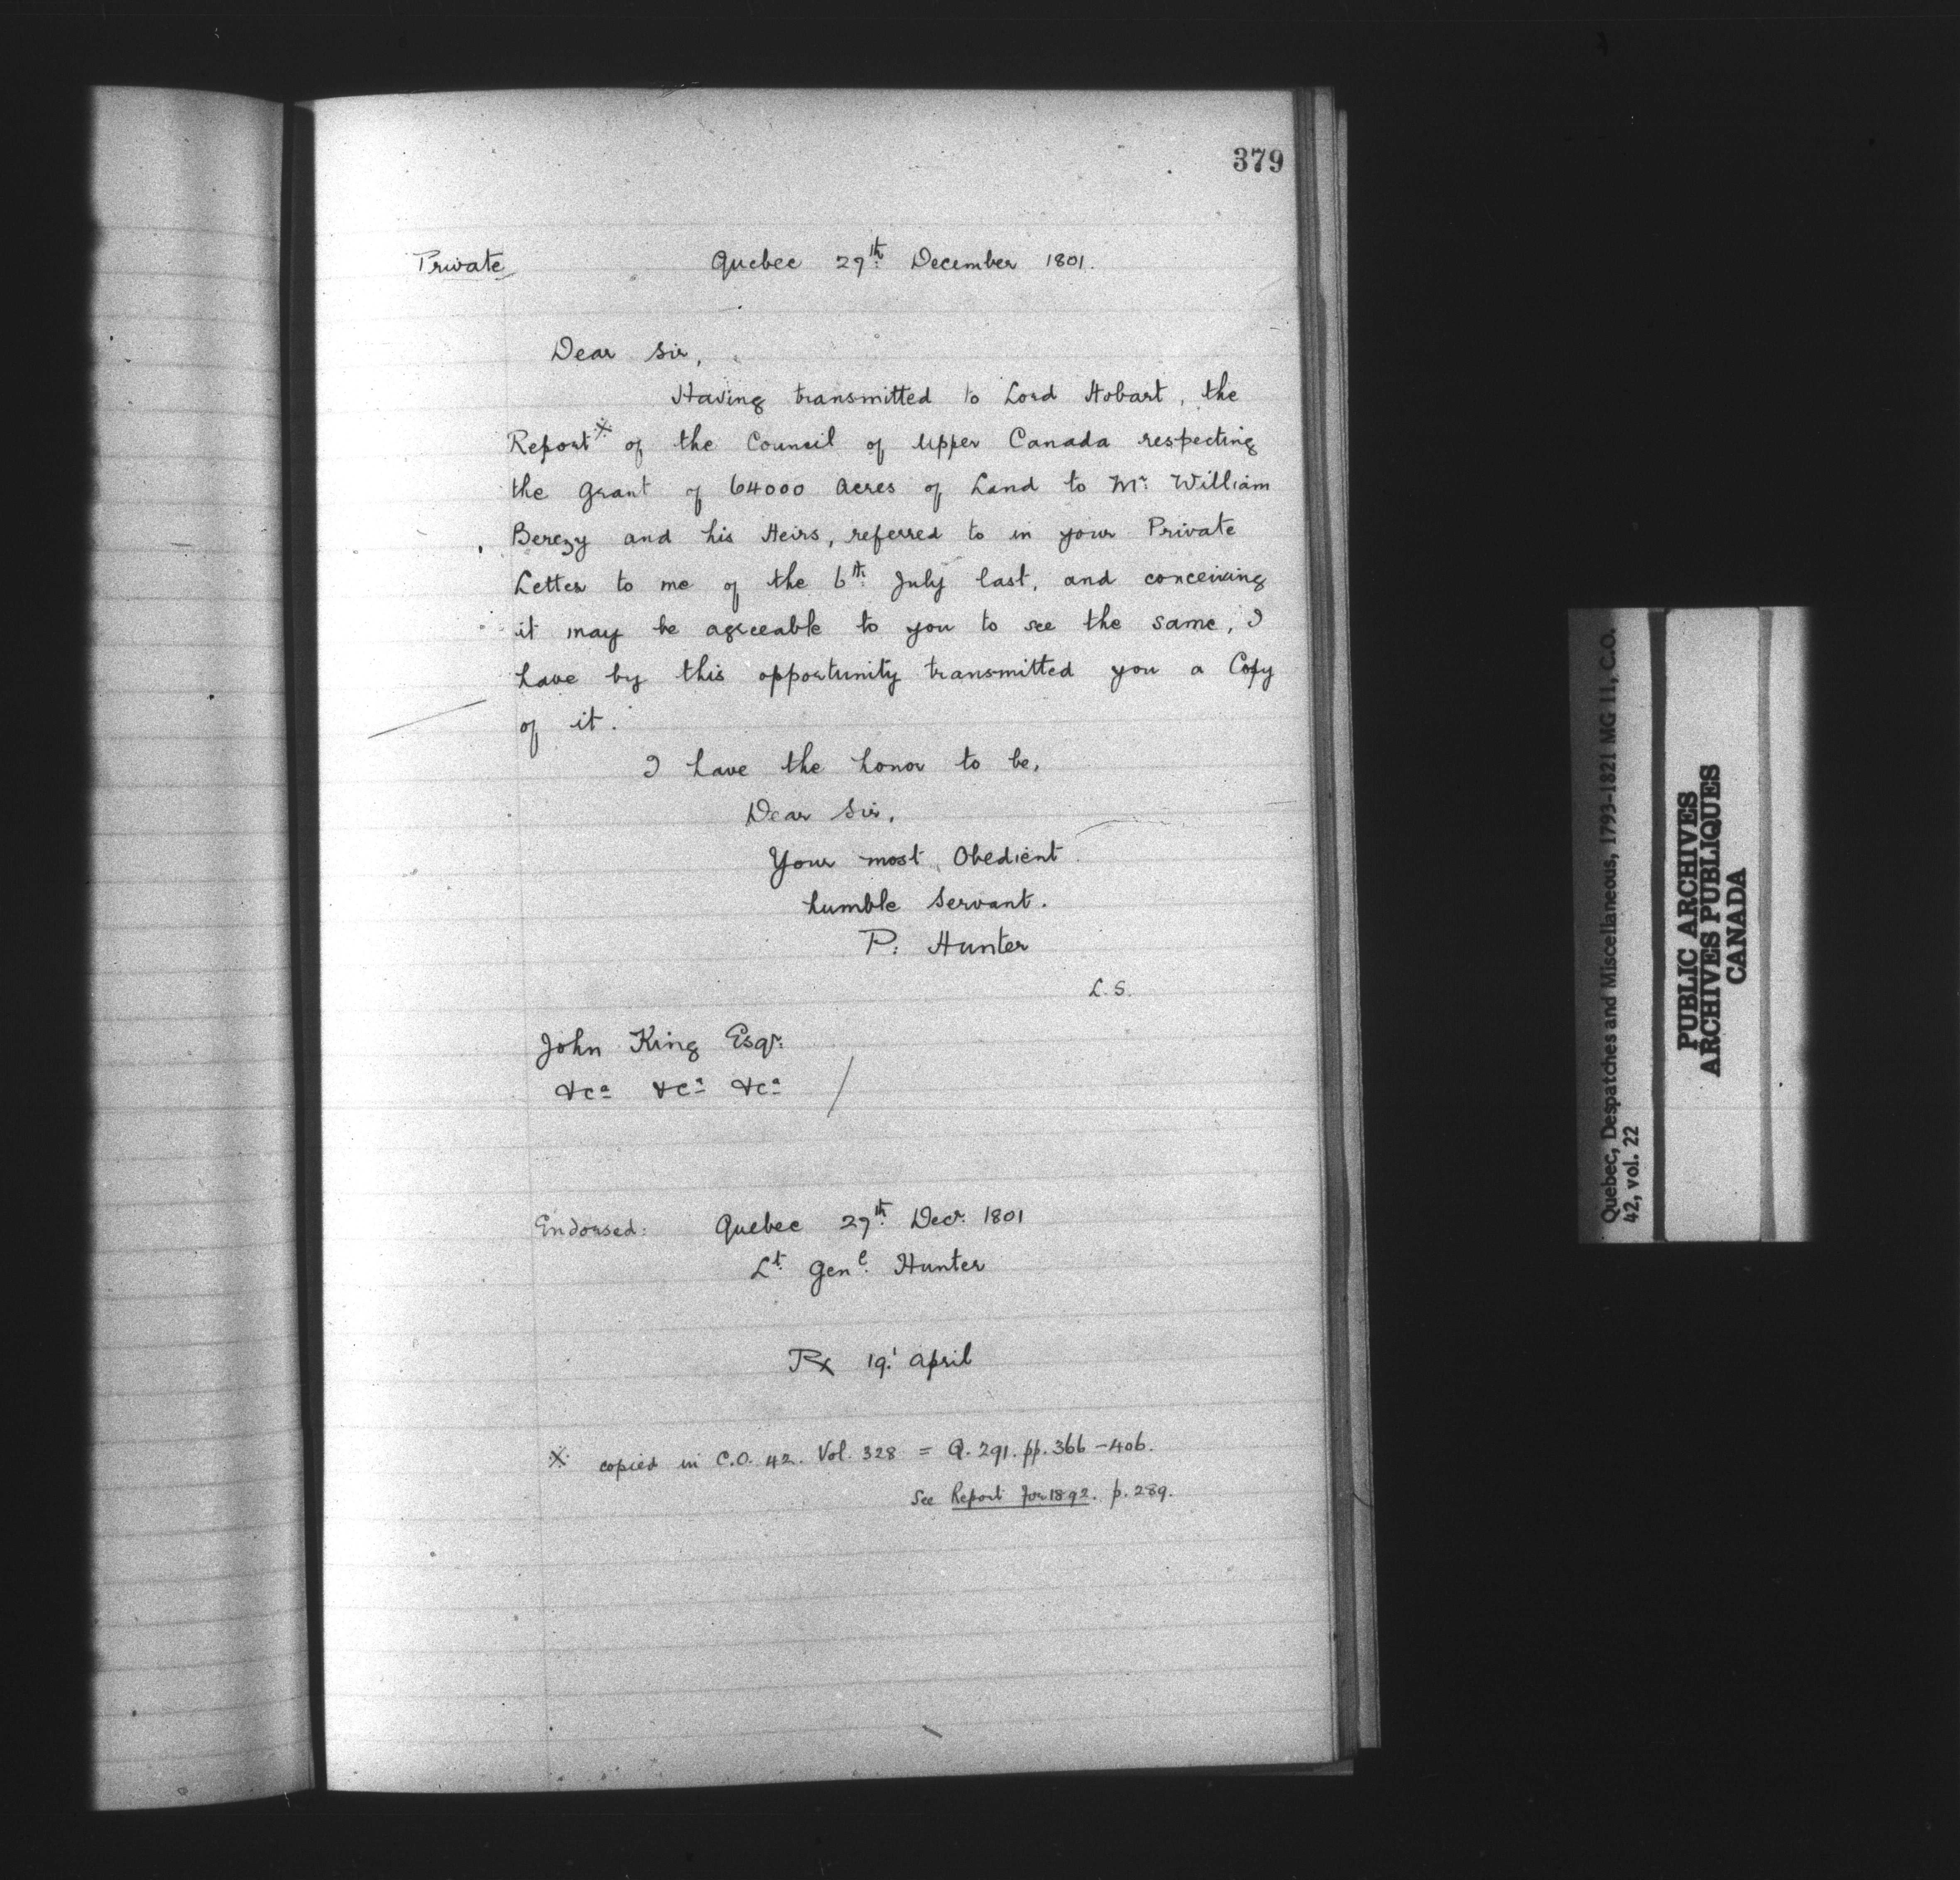 379
Private
Quebec 29th December 1801.
Dear Sir,
Having transmitted to Lord Hobart, the
Report※ of the Council of Upper Canada respecting
the Grant of 64000 Acres of Land to Mr. William
Berczy and his Heirs, referred to in your Private
Letter to me of the 6th July last, and conceiving
it may be agreeable to you to see the same, I
have by this opportunity transmitted you a Copy
of it.
I have the honor to be,
Dear Sir,
Your most Obedient
humble Servant.
P. Hunter
L.S.
John King Esqr.
&ca &ca &ca /
Endorsed: Quebec 29th Decr. 1801
Lt. Genl. Hunter
Rx 19. April
※ copied in C.O. 42. Vol. 328 = Q. 291. pp. 366-406.
See Report for 1892. p. 289.
Quebec, Despatches and Miscellaneous, 1793-1821 MG 11, C.O.
42, vol. 22
PUBLIC ARCHIVES
ARCHIVES PUBLIQUES
CANADA